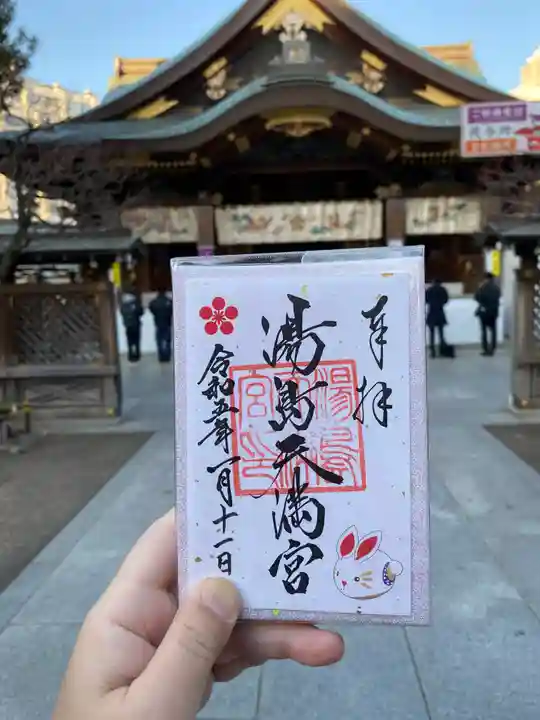 奉拝
湯島天満宮
令和五年一月十一日